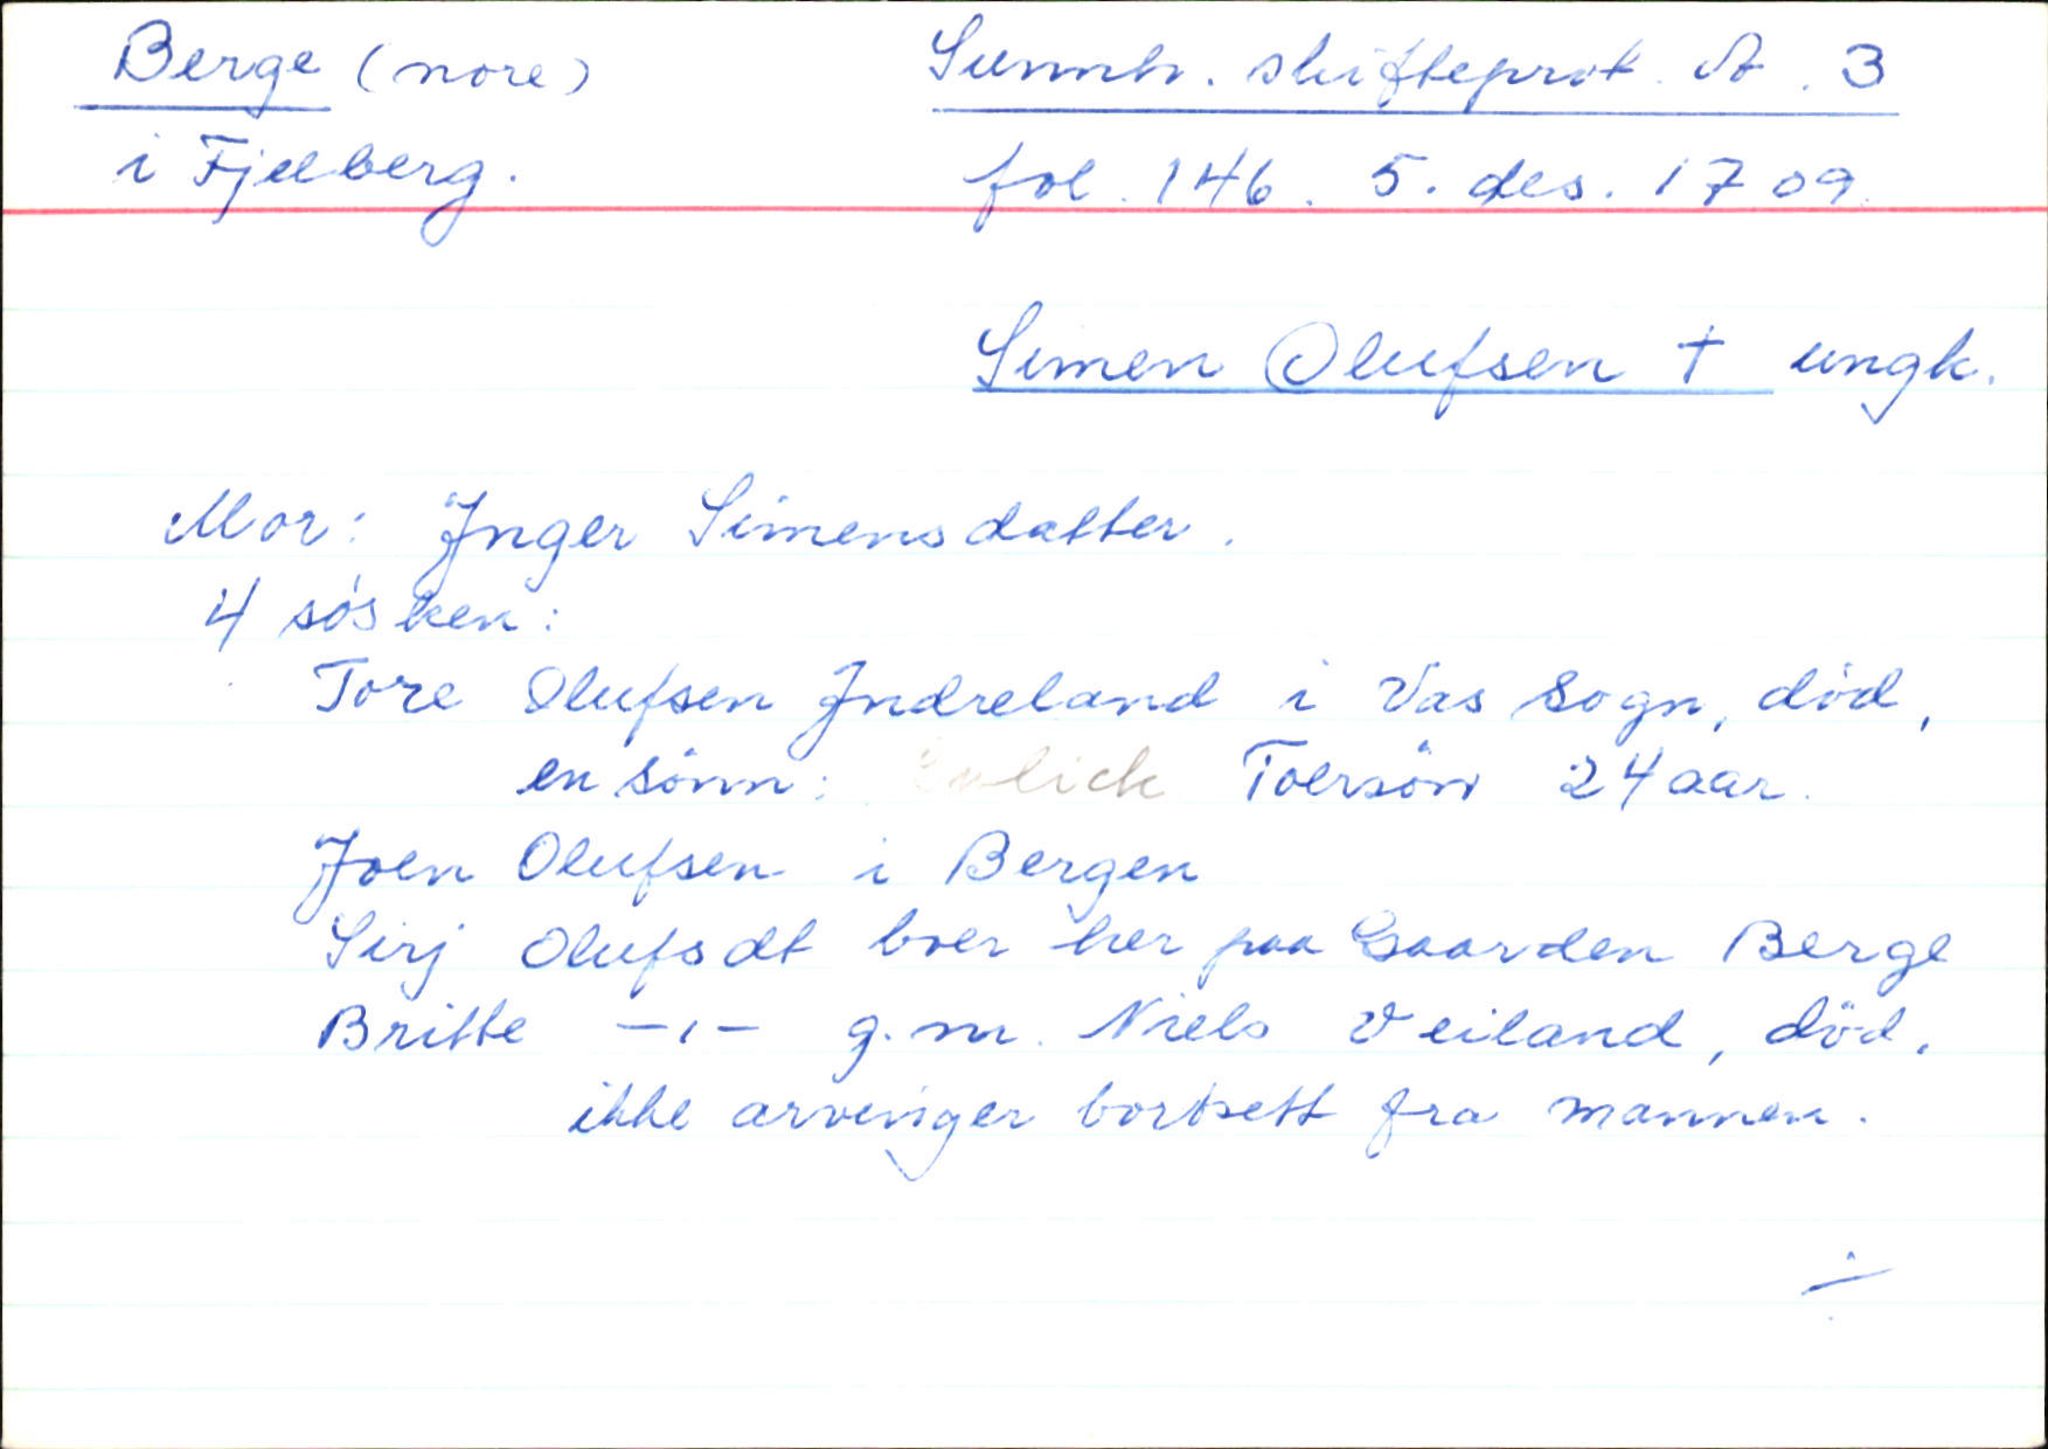 Berge (nore)
i Fjelberg.
Sunnh. skifteprot. A. 3
fol. 146. 5. des. 1709.
Simen Olufsen † ungk.
Mor: Inger Simensdatter.
4 søsken:
Tore Olufsen Indreland i Vas Sogn, död,
en sönn: Toersön 24 aar.
Joen Olufsen i Bergen
Sirj Olufsdt boer her paa Gaarden Berge
Britte —ı— g.m. Niels Veiland, död,
ikke arvinger bortsett fra mannen.
÷